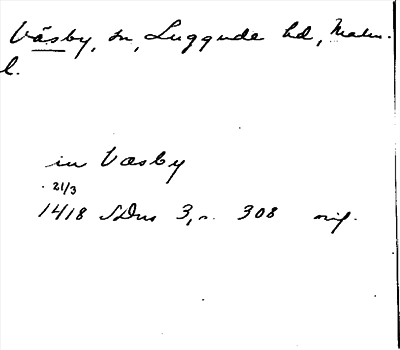 Väsby, sn, Luggude hd, Malm.
l.
in Vasby
21/3
1418 SDns 3, s. 308 orig.